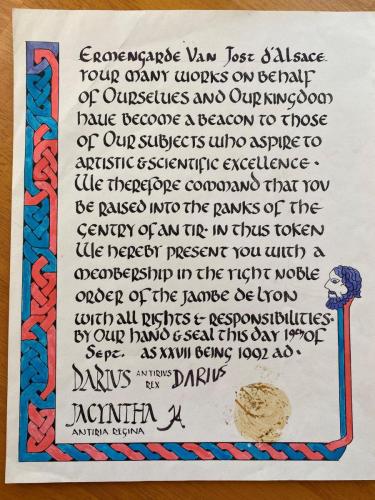 Ermengarde Van Jost d'Alsace.
Your many works on behalf
of Ourselves and Our kingdom
have become a beacon to those
of Our subjects who aspire to
artistic & scientific excellence.
We therefore command that you
be raised into the ranks of the
Gentry of An Tir. In thus token
We hereby present you with a
membership in the right noble
order of the Jambe de Lyon
with all Rights & Responsibilities.
By Our hand & seal this day 19th of
Sept. AS XXVII being 1992 AD.
DARIUS ANTIRIUS REX DARIUS
JACYNTHA
ANTIRIA REGINA